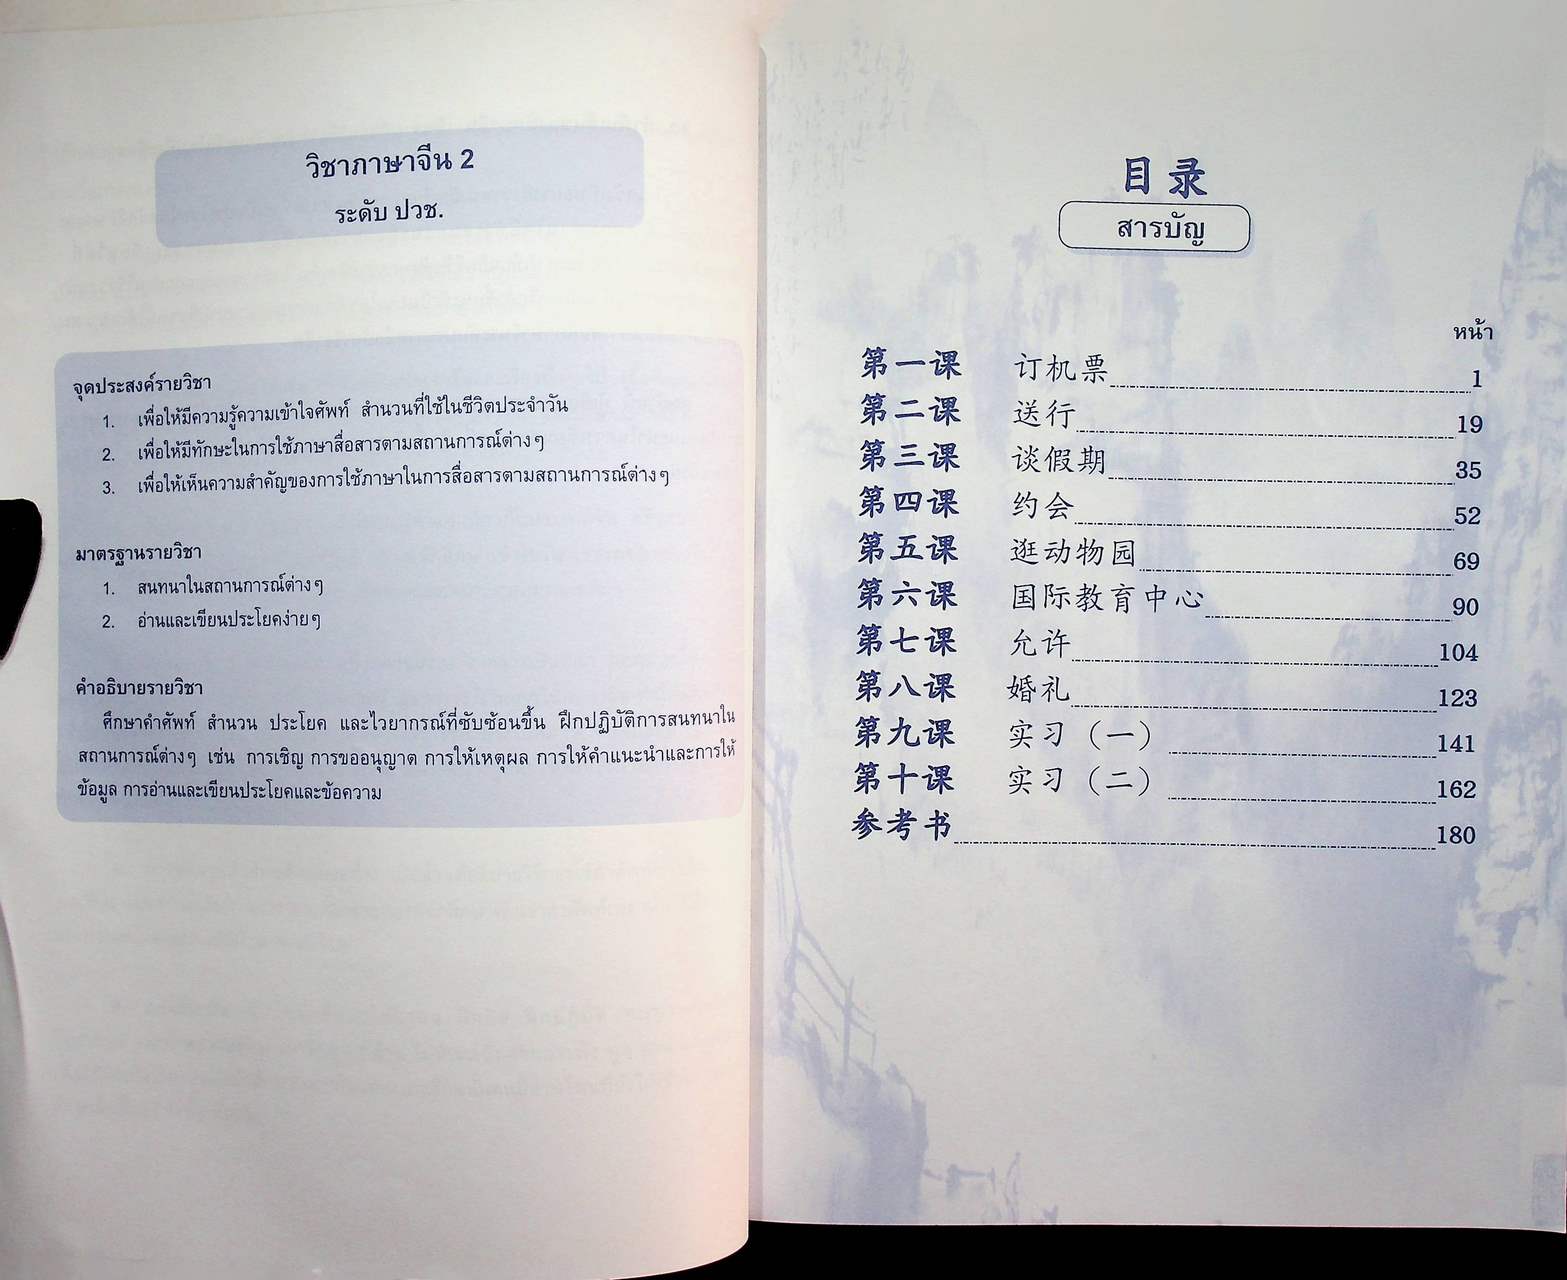 วิชาภาษาจีน 2
ระดับ ปวช.
จุดประสงค์รายวิชา
1. เพื่อให้มีความรู้ความเข้าใจศัพท์ สำนวนที่ใช้ในชีวิตประจำวัน
2. เพื่อให้มีทักษะในการใช้ภาษาสื่อสารตามสถานการณ์ต่างๆ
3. เพื่อให้เห็นความสำคัญของการใช้ภาษาในการสื่อสารตามสถานการณ์ต่างๆ
มาตรฐานรายวิชา
1. สนทนาในสถานการณ์ต่างๆ
2. อ่านและเขียนประโยคง่ายๆ
คำอธิบายรายวิชา
ศึกษาคำศัพท์ สำนวน ประโยค และไวยากรณ์ที่ซับซ้อนขึ้น ฝึกปฏิบัติการสนทนาใน
สถานการณ์ต่างๆ เช่น การเชิญ การขออนุญาต การให้เหตุผล การให้คำแนะนำและการให้
ข้อมูล การอ่านและเขียนประโยคและข้อความ
目录
สารบัญ
หน้า
第一课 订机票 1
第二课 送行 19
第三课 谈假期 35
第四课 约会 52
第五课 逛动物园 69
第六课 国际教育中心 90
第七课 允许 104
第八课 婚礼 123
第九课 实习（一） 141
第十课 实习（二） 162
参考书 180